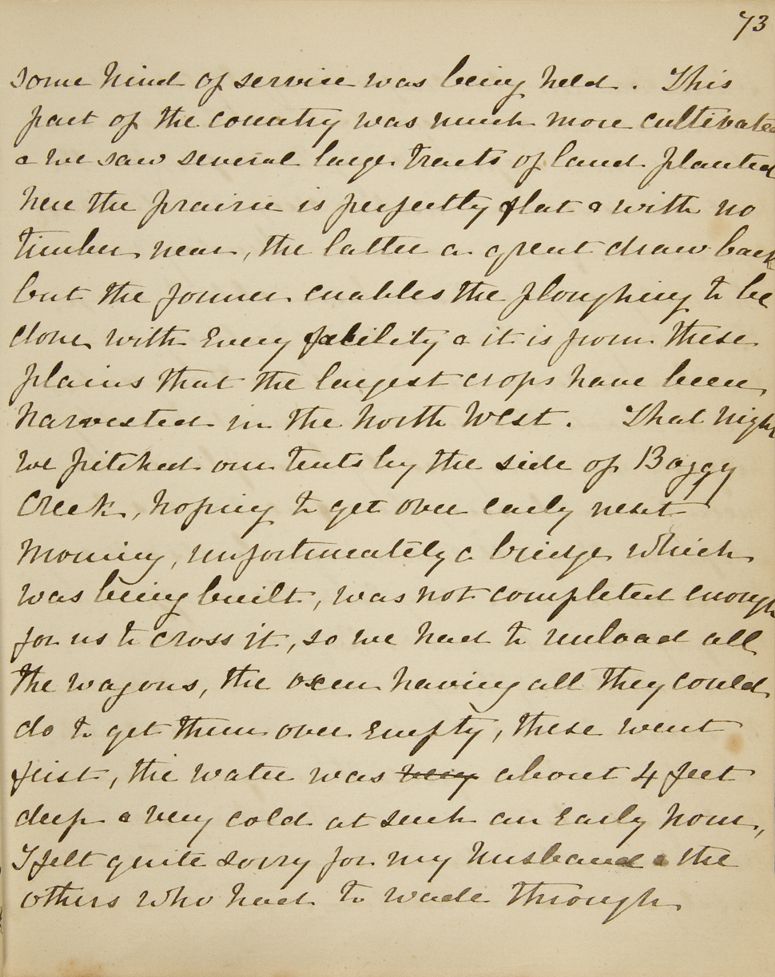 73
some kind of service was being held. This
part of the country was much more cultivated
& we saw several large tracts of land planted
here the prairie is perfectly flat & with no
timber near, the latter a great draw back
but the former enables the ploughing to be
done with every facility & it is from these
plains that the largest crops have been
harvested in the North West. That night
we pitched our tents by the side of Boggy
Creek, hoping to get over early next
morning, unfortunately a bridge which
was being built, was not completed enough
for us to cross it, so we had to unload all
the wagons, the oxen having all they could
do to get them over empty, these went
first, the water was very about 4 feet
deep & very cold at such an early hour,
I felt quite sorry for my husband & the
others who had to wade through